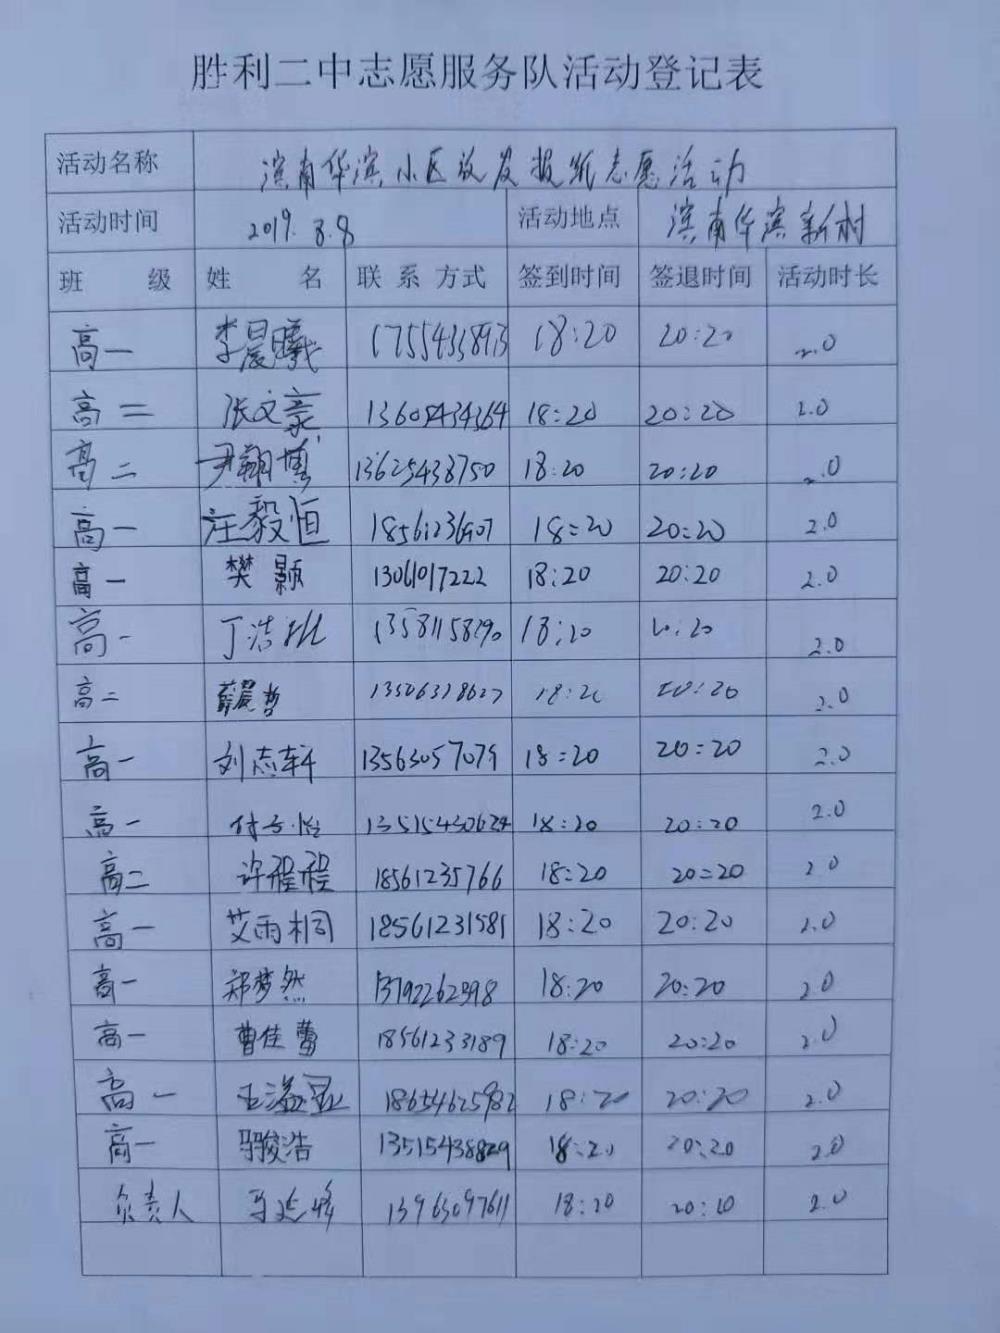 胜利二中志愿服务队活动登记表
活动名称 滨南华滨小区放发报纸志愿活动
活动时间 2019.8.8 活动地点 滨南华滨新村
班级 姓名 联系方式 签到时间 签退时间 活动时长
高一 李晨曦 18:20 20:20 2.0
高二 张文豪 13605434364 18:20 20:20 2.0
高二 尹翔博 13625438750 18:20 20:20 2.0
高一 庄毅恒 18:20 20:20 2.0
高一 樊颢 18:20 20:20 2.0
高一 丁浩 18:20 20:20 2.0
高二 薛晨哲 18:20 20:20 2.0
高一 刘志轩 13563057079 18:20 20:20 2.0
高一 付子怡 13515430624 18:20 20:20 2.0
高二 许程程 18561235766 18:20 20:20 2.0
高一 艾雨桐 18561231581 18:20 20:20 2.0
高一 郑梦然 18:20 20:20 2.0
高一 曹佳蕾 18561233189 18:20 20:20 2.0
高一 王溢 18654625982 18:20 20:20 2.0
高一 马骏浩 13515438829 18:20 20:20 2.0
负责人 马 13963097611 18:20 2.0